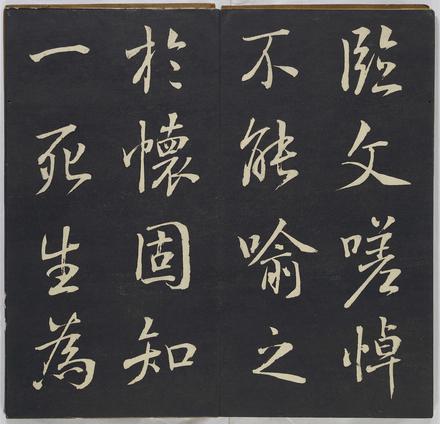 臨文嗟悼
不能喻之
於懷固知
一死生為